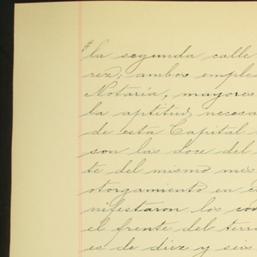 la segunda calle
rez; ambos emple
Notaria, mayores
ba aptitud, necesa
de esta Capital
son las doce del
te del mismo mes
otorgamiento en e
nifestaron los con
el frente del terr
es de diez y seis